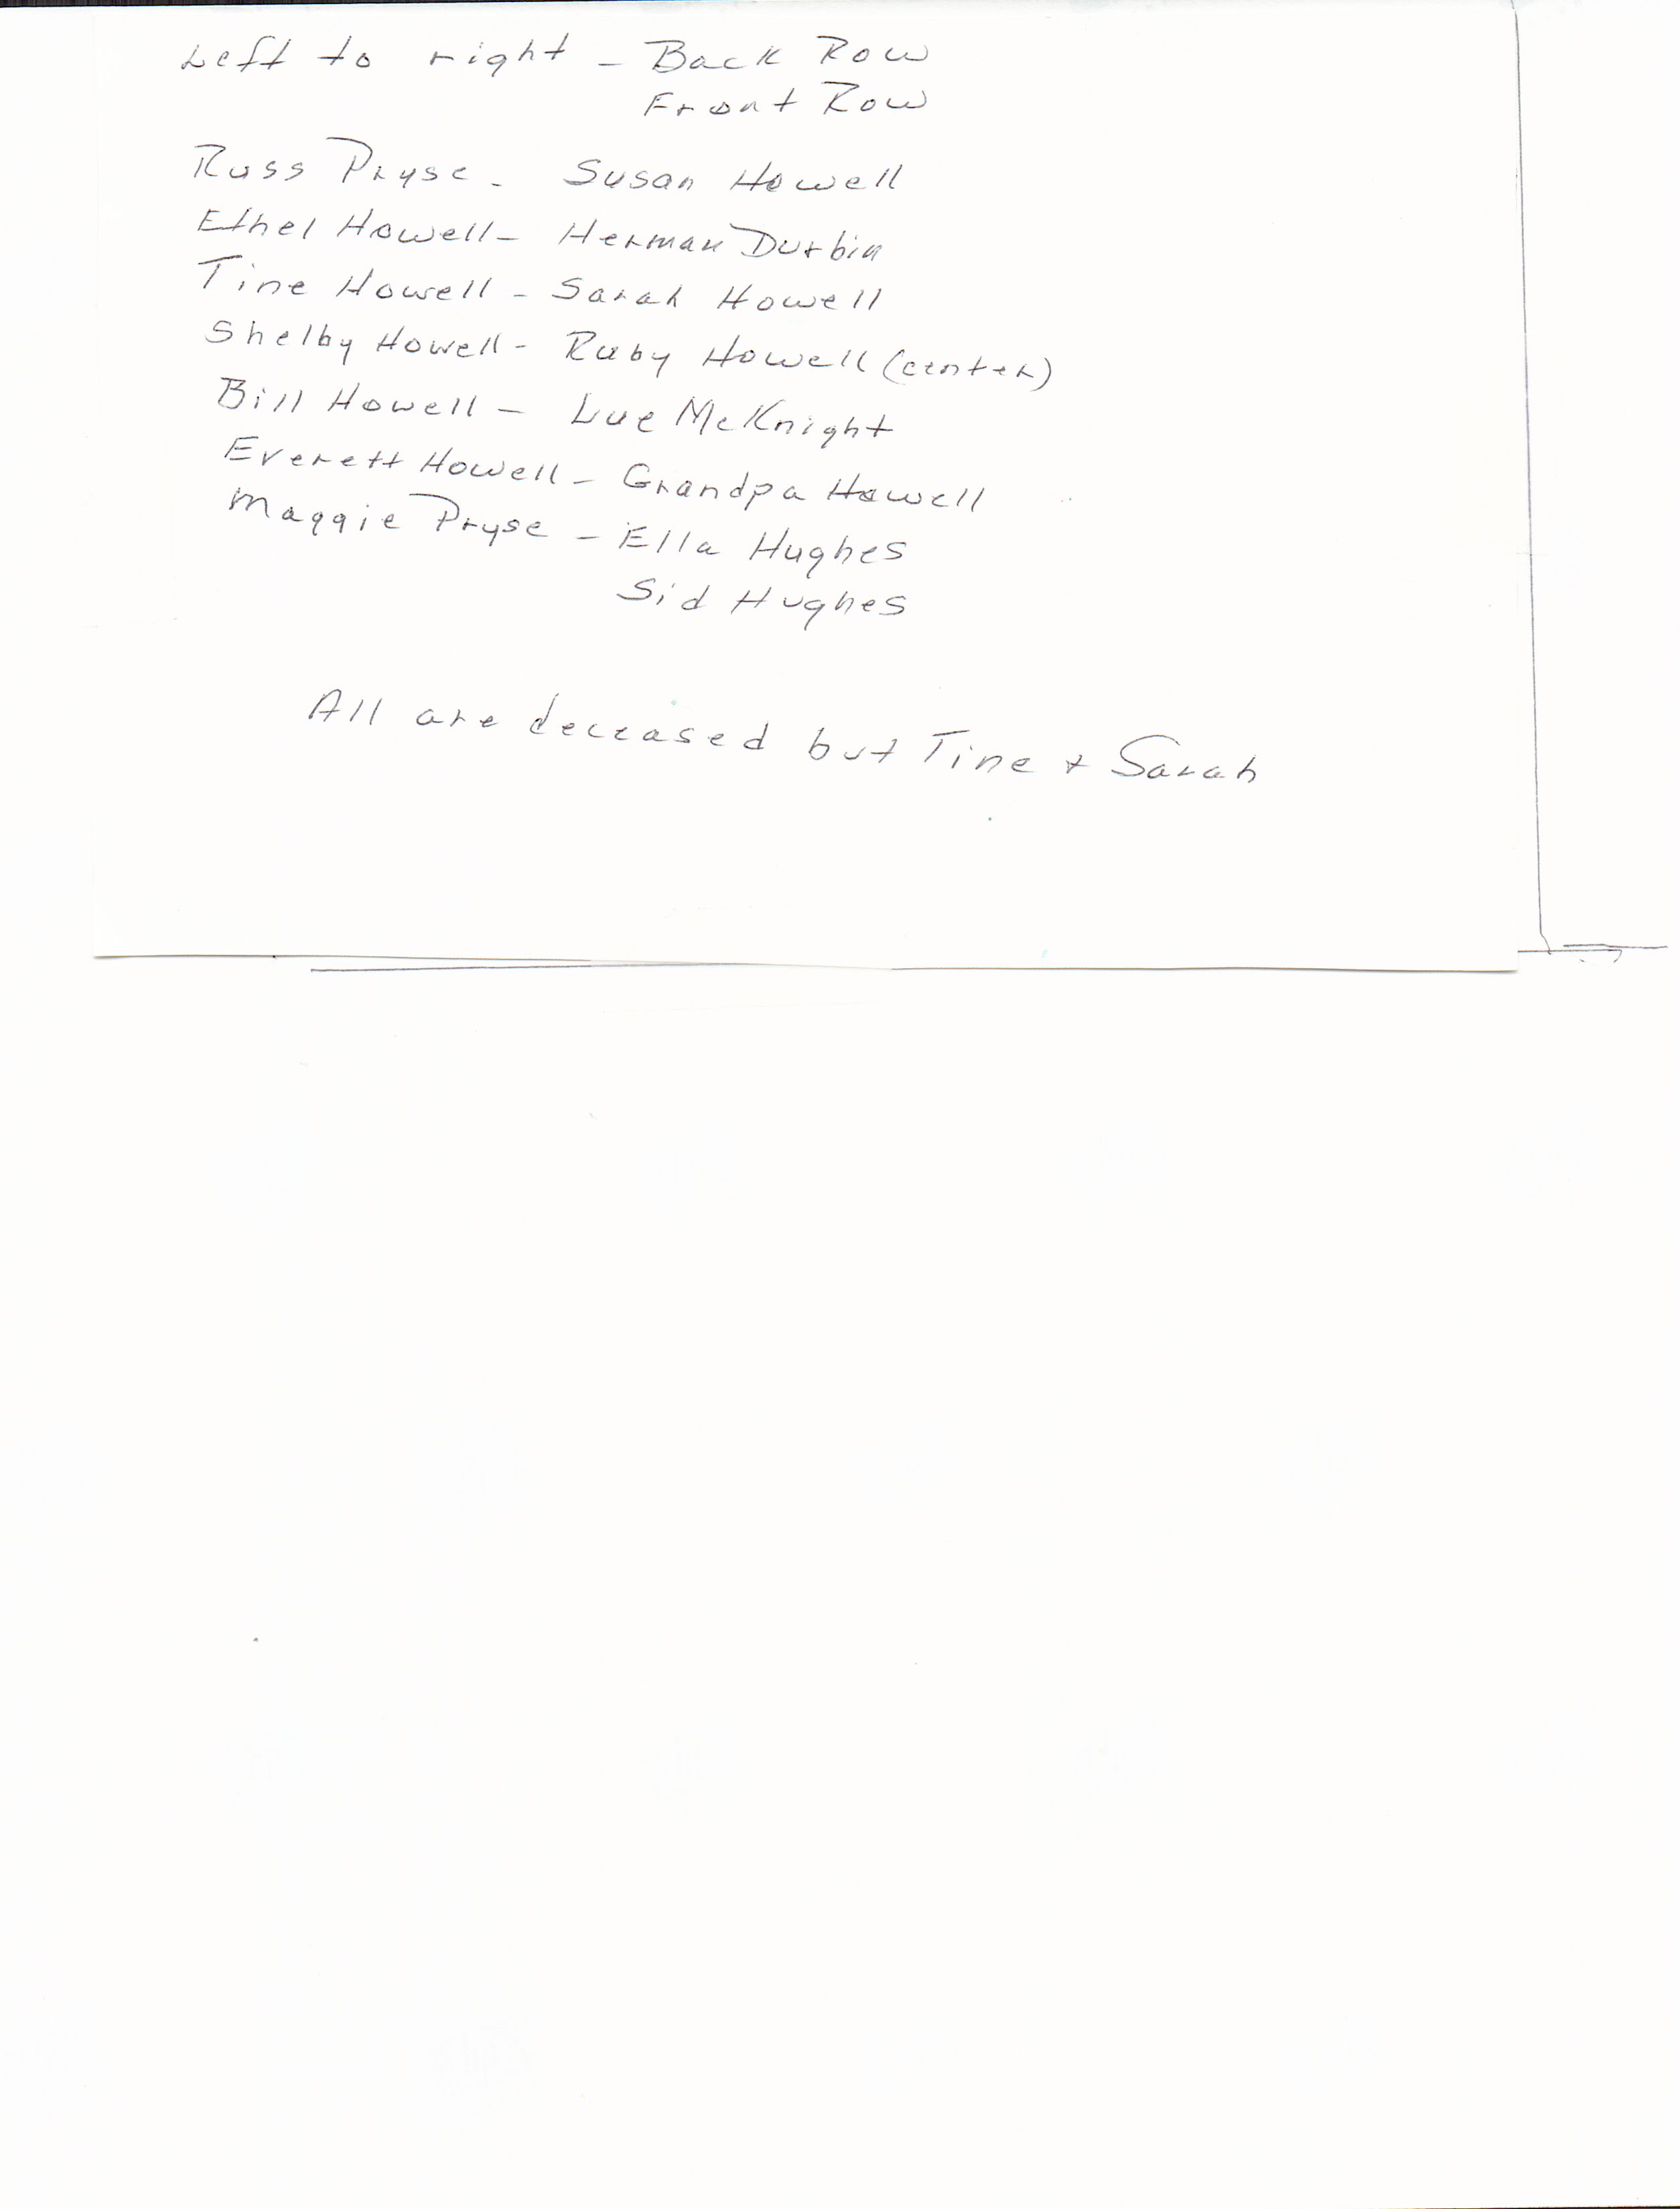 Left to right - Back Row
Front Row
Russ Pryse - Susan Howell
Ethel Howell - Herman Durbin
Tine Howell - Sarah Howell
Shelby Howell - Ruby Howell (center)
Bill Howell - Lue McKnight
Everett Howell - Grandpa Howell
Maggie Pryse - Ella Hughes
Sid Hughes
All are deceased but Tine + Sarah